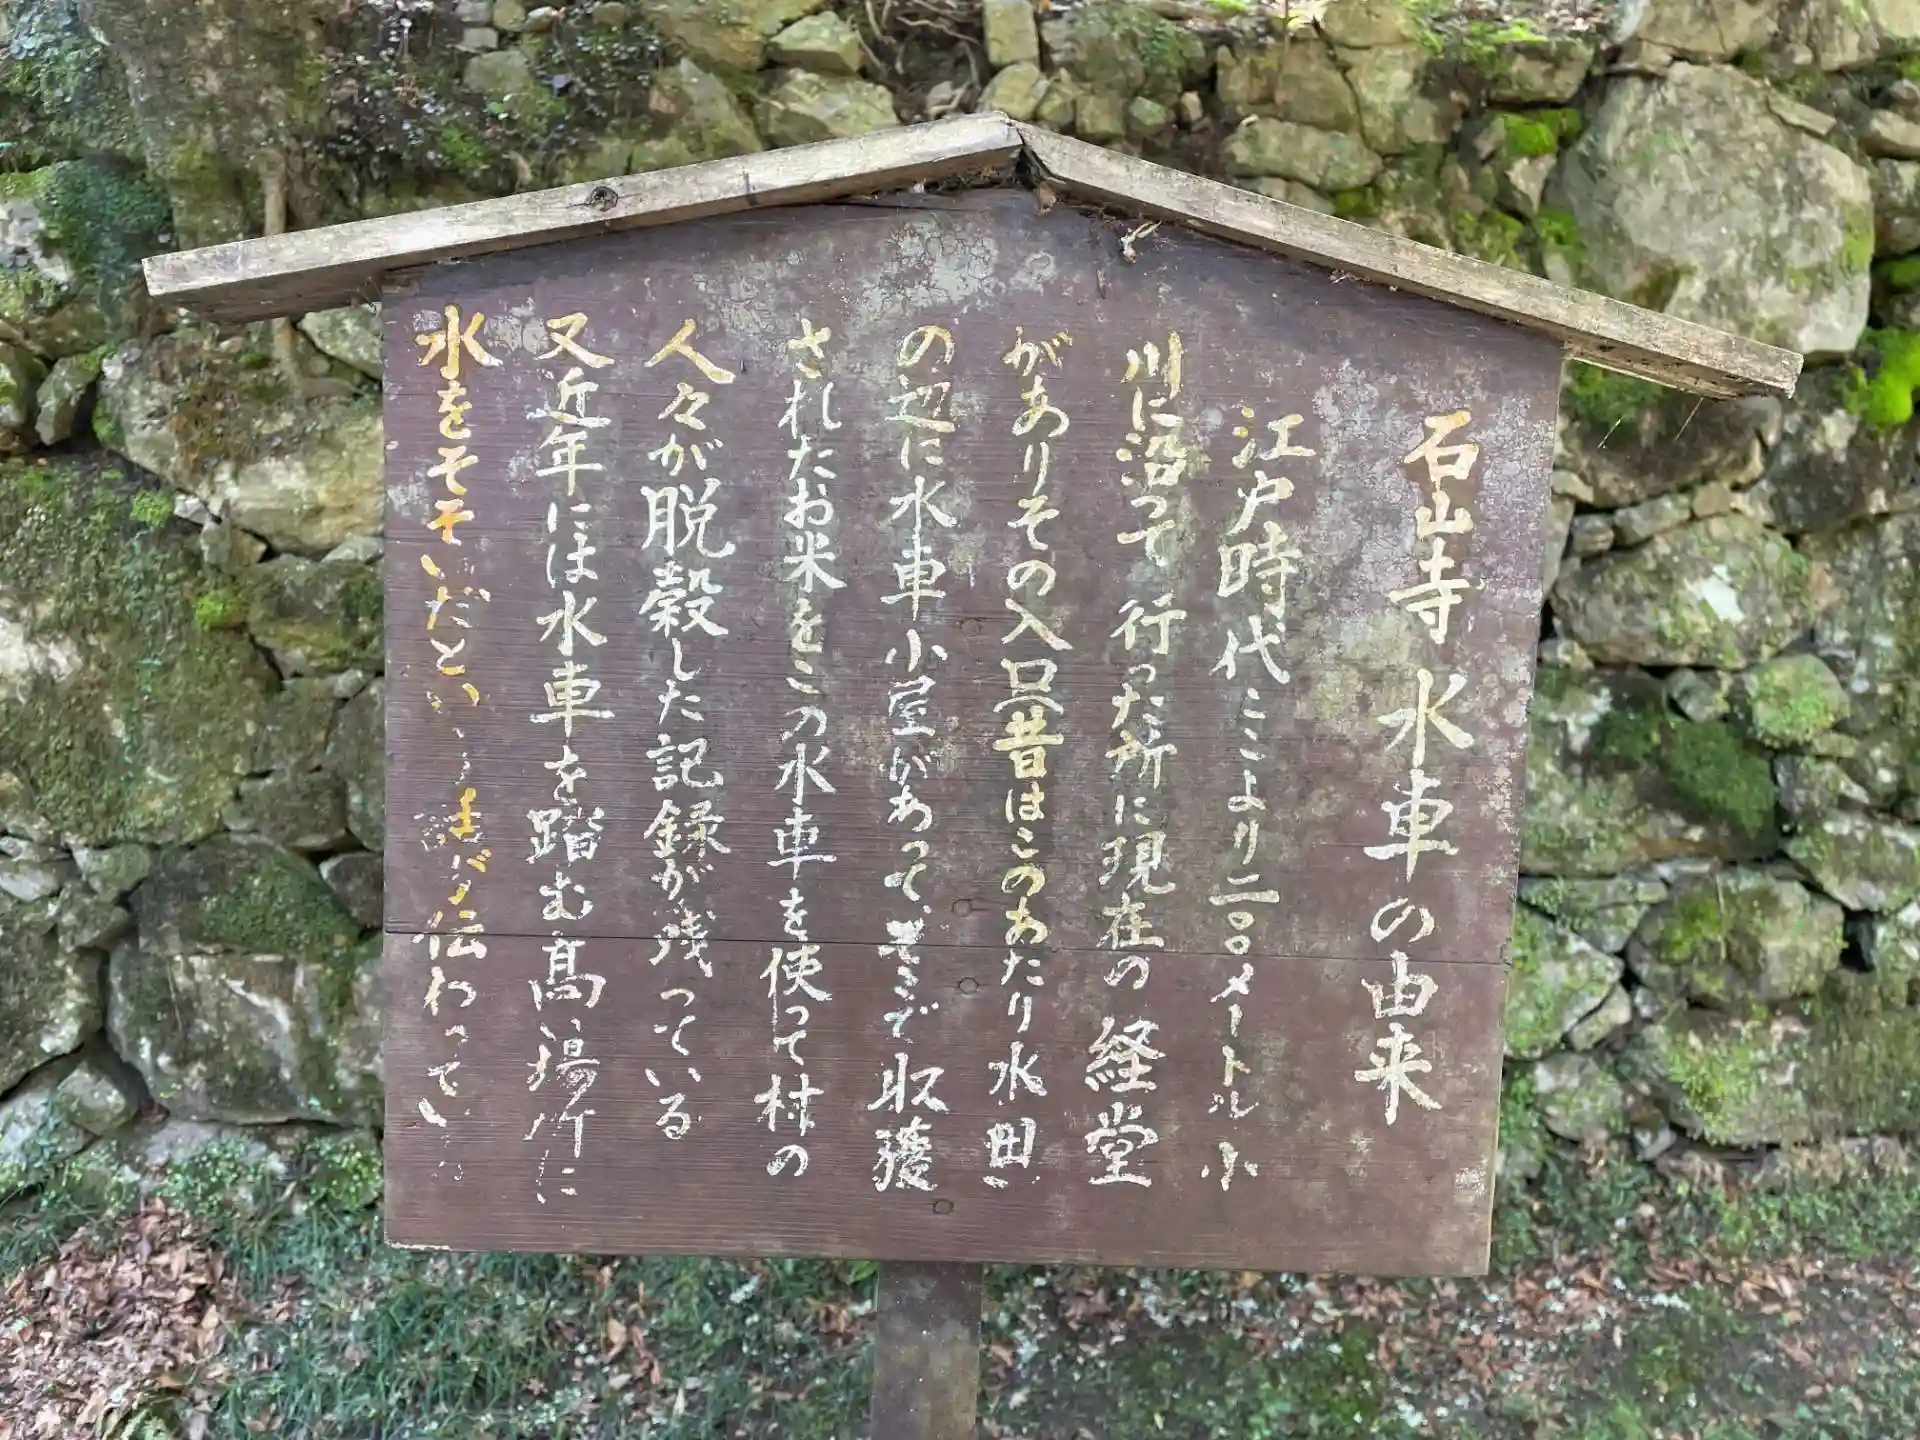 石山寺 水車の由来
江戸時代ここより二〇〇メートル小
川に沿って行った所に現在の経堂
がありその入口昔はこのあたり水田
の辺に水車小屋があって、そこで収穫
されたお米をこの水車を使って村の
人々が脱穀した記録が残っている
又近年には水車を踏む髙い場所に
水をそそいだという 話が伝わってい